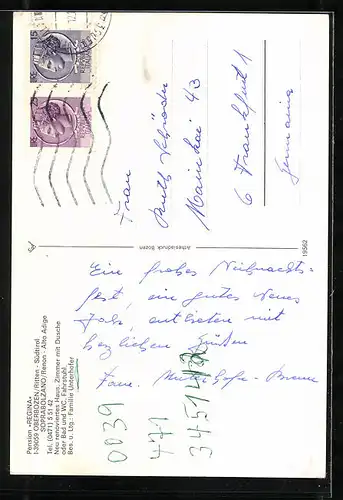 Pension «REGINA»
I-39059 OBERBOZEN/Ritten - Südtirol
SOPRABOLZANO/Renon - Alto Adige
Tel. (0471) 5 51 42
Neu renoviertes Haus, Zimmer mit Dusche
oder Bad und WC. Fahrstuhl.
Bes. u. Ltg.: Familie Unterhofer
Ein frohes Weihnachts-
fest, ein gutes Neues
Jahr, entbieten mit
herzlichen Grüßen
Fam. Unterhofer
0039
471
Artesiadruck Bozen
19562
Frau
Ruth Schröder
Mainkai 43
6 Frankfurt 1
Germania